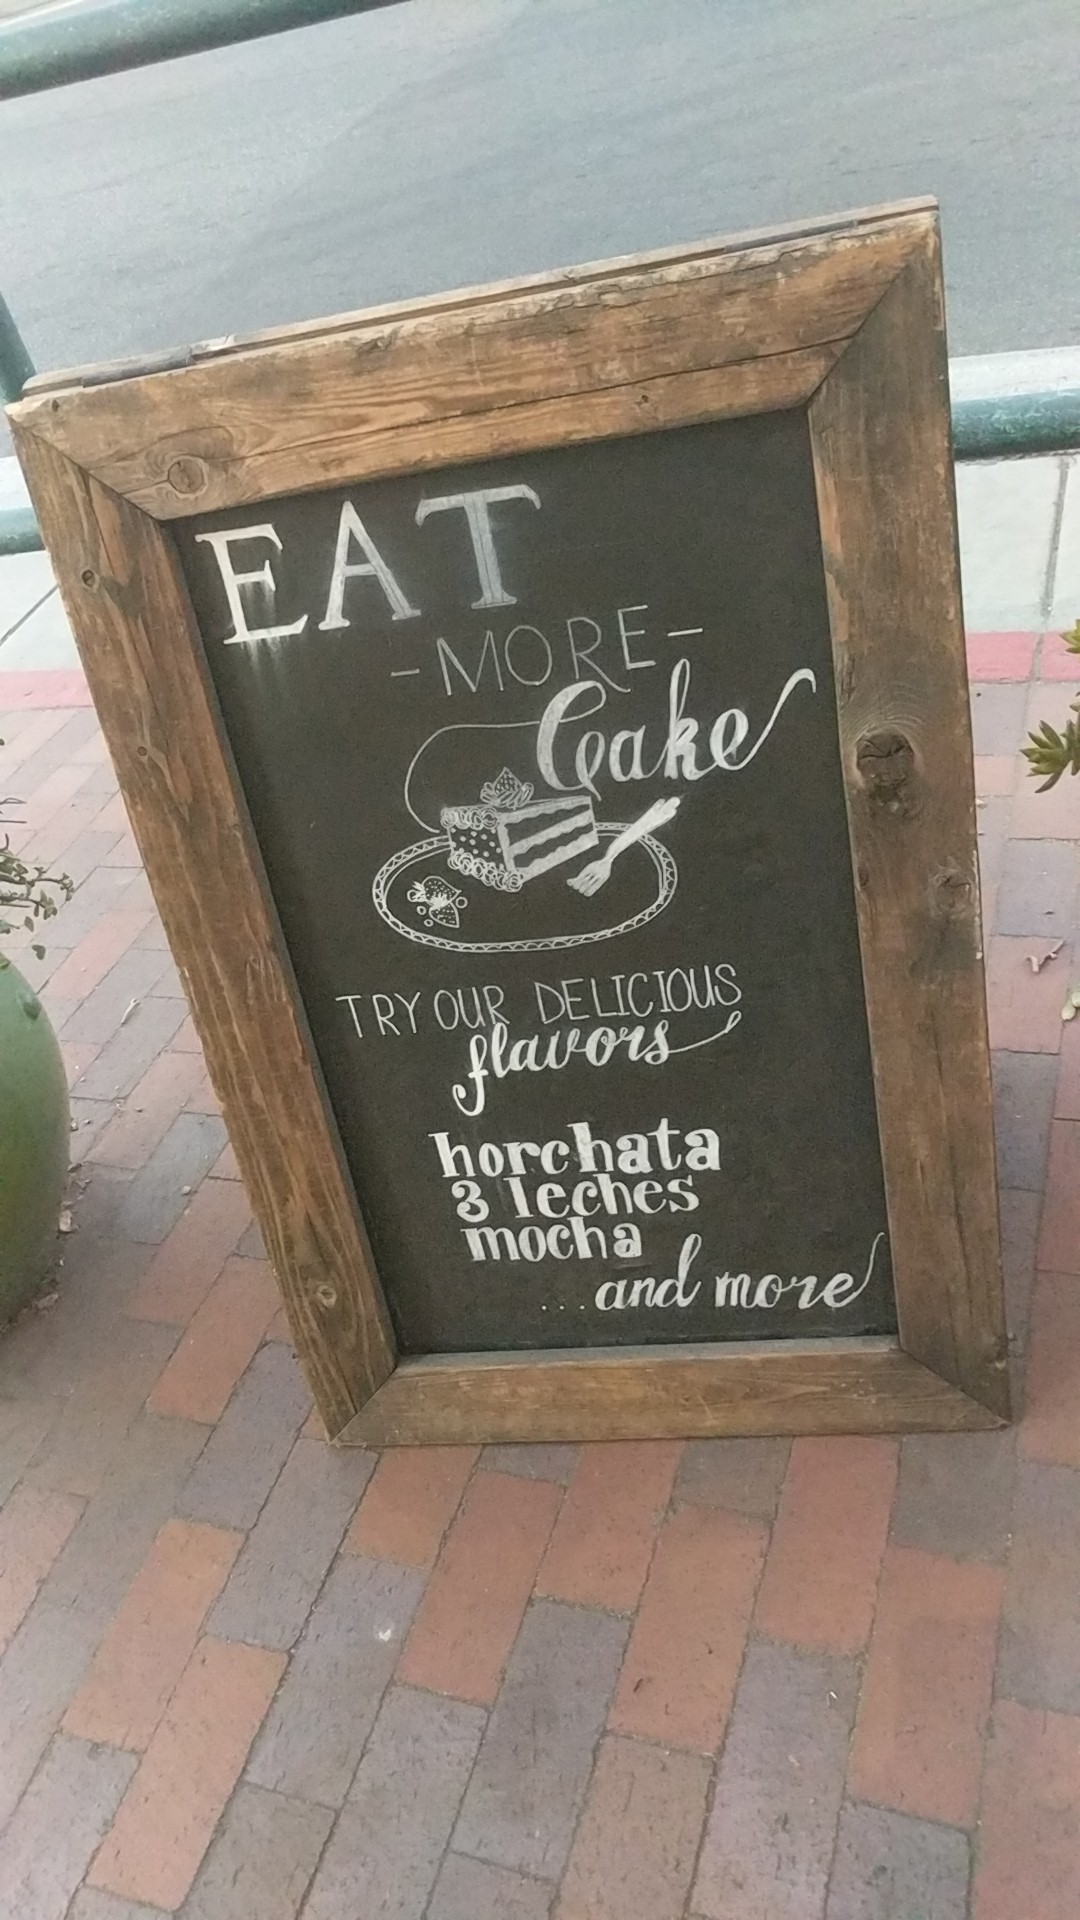 EAT
-MORE-
Cake
TRY OUR DELICIOUS
flavors
horchata
3 leches
mocha
...and more